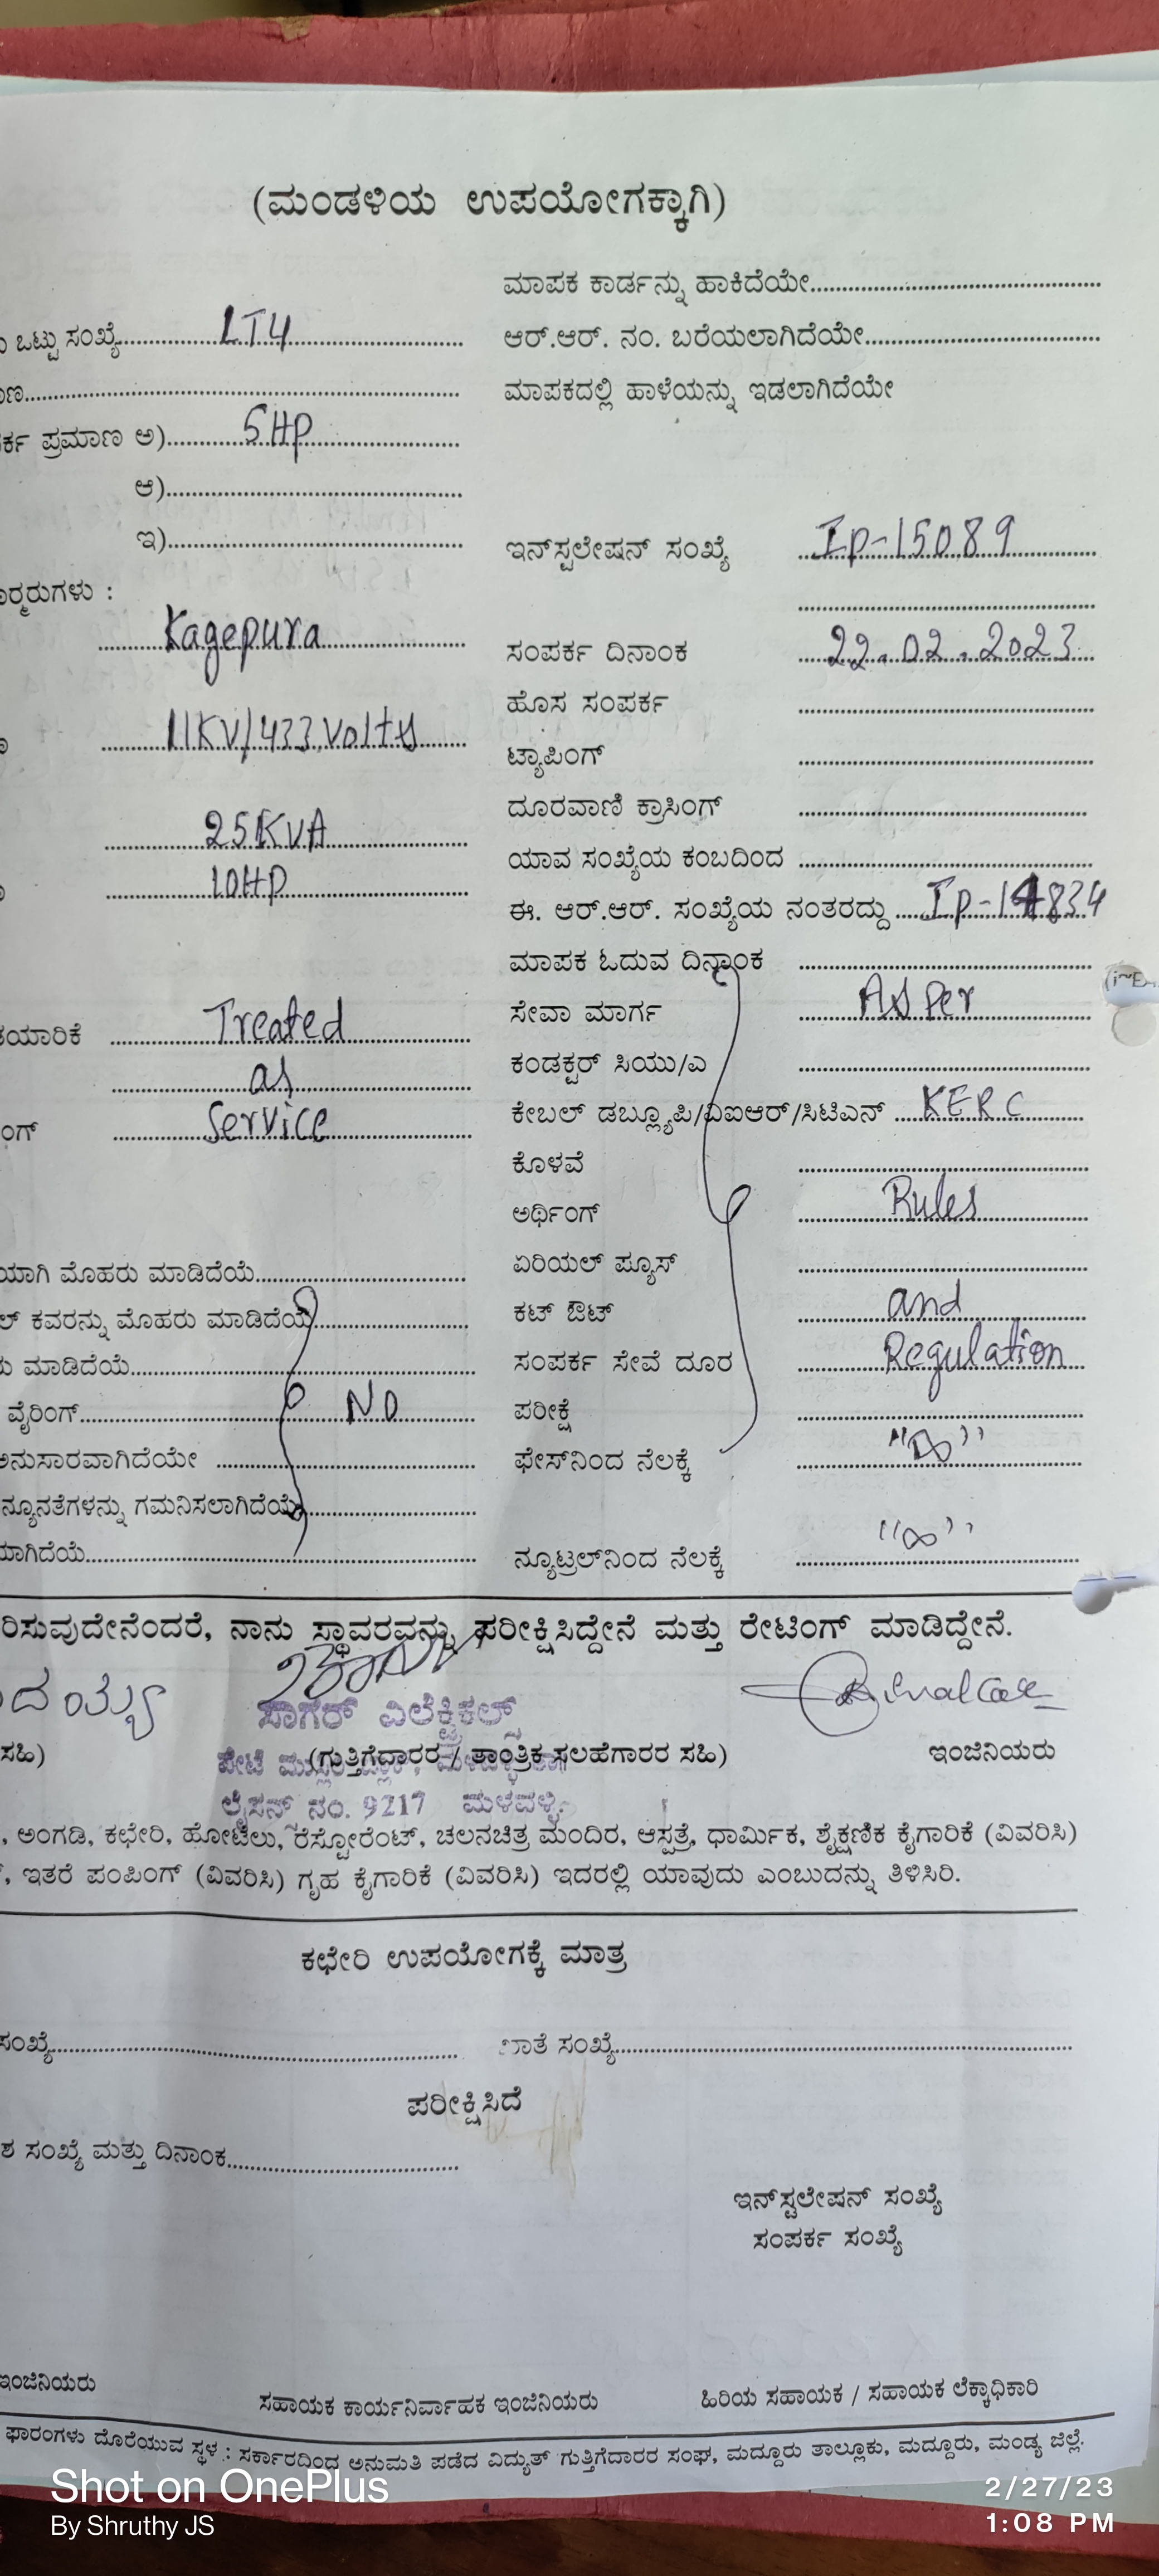 (ಮಂಡಳಿಯ ಉಪಯೋಗಕ್ಕಾಗಿ)
ಮಾಪಕ ಕಾರ್ಡನ್ನು ಹಾಕಿದೆಯೇ
ಒಟ್ಟು ಸಂಖ್ಯೆ LT4
ಆರ್.ಆರ್. ನಂ. ಬರೆಯಲಾಗಿದೆಯೇ
ಮಾಪಕದಲ್ಲಿ ಹಾಳೆಯನ್ನು ಇಡಲಾಗಿದೆಯೇ
ಪ್ರಮಾಣ ಅ) 5HP
ಆ)
ಇ)
ಇನ್‌ಸ್ಟಲೇಷನ್ ಸಂಖ್ಯೆ Ip-15089
Kagepura
ಸಂಪರ್ಕ ದಿನಾಂಕ 22.02.2023
ಹೊಸ ಸಂಪರ್ಕ
11KV/433 Volts
ಟ್ಯಾಪಿಂಗ್
ದೂರವಾಣಿ ಕ್ರಾಸಿಂಗ್
25KVA
ಯಾವ ಸಂಖ್ಯೆಯ ಕಂಬದಿಂದ
10HP
ಈ. ಆರ್.ಆರ್. ಸಂಖ್ಯೆಯ ನಂತರದ್ದು Ip-14834
ಮಾಪಕ ಓದುವ ದಿನಾಂಕ
ಸೇವಾ ಮಾರ್ಗ As Per
Treated
ಕಂಡಕ್ಟರ್ ಸಿಯು/ಎ
as
ಕೇಬಲ್ ಡಬ್ಲ್ಯೂಪಿ/ವಿಐಆರ್/ಸಿಟಿಎಸ್ KERC
Service
ಕೊಳವೆ
ಅರ್ಥಿಂಗ್ Rules
ಏರಿಯಲ್ ಫ್ಯೂಸ್
ಮೊಹರು ಮಾಡಿದೆಯೆ
ಕಟ್ ಔಟ್ and
ಕವರನ್ನು ಮೊಹರು ಮಾಡಿದೆಯೆ
ಸಂಪರ್ಕ ಸೇವೆ ದೂರ Regulation
ಮಾಡಿದೆಯೆ
ಪರೀಕ್ಷೆ
ವೈರಿಂಗ್ NO
ಫೇಸ್‌ನಿಂದ ನೆಲಕ್ಕೆ "∞"
ಅನುಸಾರವಾಗಿದೆಯೇ
ನ್ಯೂನತೆಗಳನ್ನು ಗಮನಿಸಲಾಗಿದೆಯೆ
ನ್ಯೂಟ್ರಲ್‌ನಿಂದ ನೆಲಕ್ಕೆ "∞"
ನಾನು ಸ್ಥಾವರವನ್ನು ಪರೀಕ್ಷಿಸಿದ್ದೇನೆ ಮತ್ತು ರೇಟಿಂಗ್ ಮಾಡಿದ್ದೇನೆ.
ಸಾಗರ್ ಎಲೆಕ್ಟ್ರಿಕಲ್ಸ್
ಸಹಿ) (ಗುತ್ತಿಗೆದಾರರ / ತಾಂತ್ರಿಕ ಸಲಹೆಗಾರರ ಸಹಿ) ಇಂಜಿನಿಯರು
ಲೈಸನ್ಸ್ ನಂ. 9217 ಮಳವಳ್ಳಿ.
, ಅಂಗಡಿ, ಕಛೇರಿ, ಹೋಟೆಲು, ರೆಸ್ಟೋರೆಂಟ್, ಚಲನಚಿತ್ರ ಮಂದಿರ, ಆಸ್ಪತ್ರೆ, ಧಾರ್ಮಿಕ, ಶೈಕ್ಷಣಿಕ ಕೈಗಾರಿಕೆ (ವಿವರಿಸಿ)
, ಇತರೆ ಪಂಪಿಂಗ್ (ವಿವರಿಸಿ) ಗೃಹ ಕೈಗಾರಿಕೆ (ವಿವರಿಸಿ) ಇದರಲ್ಲಿ ಯಾವುದು ಎಂಬುದನ್ನು ತಿಳಿಸಿರಿ.
ಕಛೇರಿ ಉಪಯೋಗಕ್ಕೆ ಮಾತ್ರ
ಸಂಖ್ಯೆ ಖಾತೆ ಸಂಖ್ಯೆ
ಪರೀಕ್ಷಿಸಿದೆ
ಸಂಖ್ಯೆ ಮತ್ತು ದಿನಾಂಕ
ಇನ್‌ಸ್ಟಲೇಷನ್ ಸಂಖ್ಯೆ
ಸಂಪರ್ಕ ಸಂಖ್ಯೆ
ಇಂಜಿನಿಯರು ಸಹಾಯಕ ಕಾರ್ಯನಿರ್ವಾಹಕ ಇಂಜಿನಿಯರು ಹಿರಿಯ ಸಹಾಯಕ / ಸಹಾಯಕ ಲೆಕ್ಕಾಧಿಕಾರಿ
ಫಾರಂಗಳು ದೊರೆಯುವ ಸ್ಥಳ : ಸರ್ಕಾರದಿಂದ ಅನುಮತಿ ಪಡೆದ ವಿದ್ಯುತ್ ಗುತ್ತಿಗೆದಾರರ ಸಂಘ, ಮದ್ದೂರು ತಾಲ್ಲೂಕು, ಮದ್ದೂರು, ಮಂಡ್ಯ ಜಿಲ್ಲೆ.
Shot on OnePlus
By Shruthy JS
2/27/23
1:08 PM